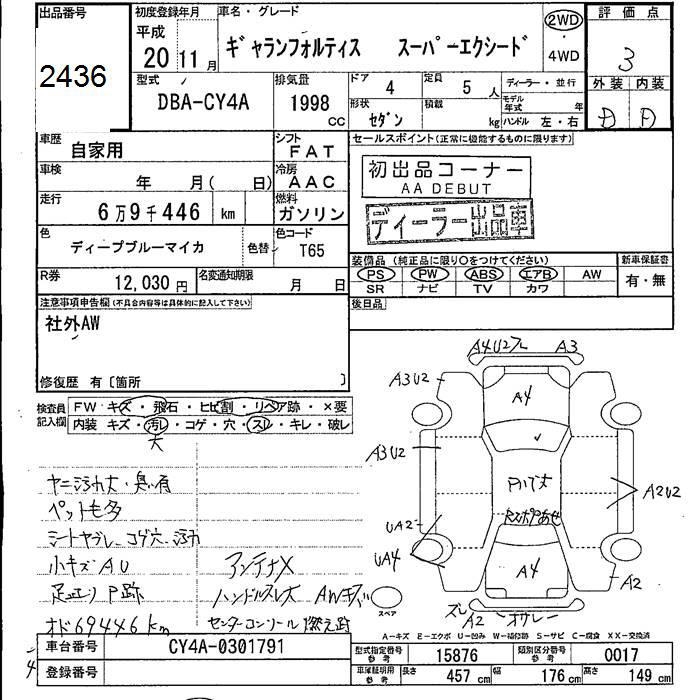 出品番号
2436
初度登録年月
平成
20年 11月
車名・グレード
ギャランフォルティス スーパーエクシード
2WD
・
4WD
評価点
3
外装 内装
D D
型式
DBA-CY4A
排気量
1998
CC
ドア 4
定員 5 人
形状 セダン
積載 kg
ディーラー・並行
モデル年式 年
ハンドル 左・右
車歴
自家用
シフト
FAT
車検
年 月( 日)
冷房
AAC
走行
6万9千446 km
燃料
ガソリン
色
ディープブルーマイカ
色替
色コード
T65
R券
12,030円
名変通知期限
月 日
セールスポイント(正常に機能するものに限ります)
初出品コーナー
AA DEBUT
ディーラー出品車
装備品 (純正品に限り○をつけてください)
PS PW ABS エアB AW
SR ナビ TV カワ
新車保証書
有・無
後日品
注意事項申告欄(不具合内容等は具体的に記入して下さい)
社外AW
修復歴 有〔箇所 〕
検査員記入欄
FW キズ・飛石・ヒビ割・リペア跡・×要
内装 キズ・汚レ・コゲ・穴・スレ・キレ・破レ
大
ヤニ汚れ大・臭い有
ペット毛多
シートヤブレ コゲ穴 汚れ
小キズAU
アンテナX
ハンドルスレ大 AWキズ
オド69446km
センターコンソール 燃え跡
スペア
A4U2 A3
A3U2
A4
A3U2
A2U2
UA2
UA4
A4
A2
ズレ A2
A-キズ E-エクボ U-凹み W-補修跡 S-サビ C-腐食 XX-交換済
車台番号
CY4A-0301791
登録番号
型式指定番号 参考
15876
類別区分番号 参考
0017
車庫証明用 参考
長さ 457 cm
幅 176 cm
高さ 149 cm